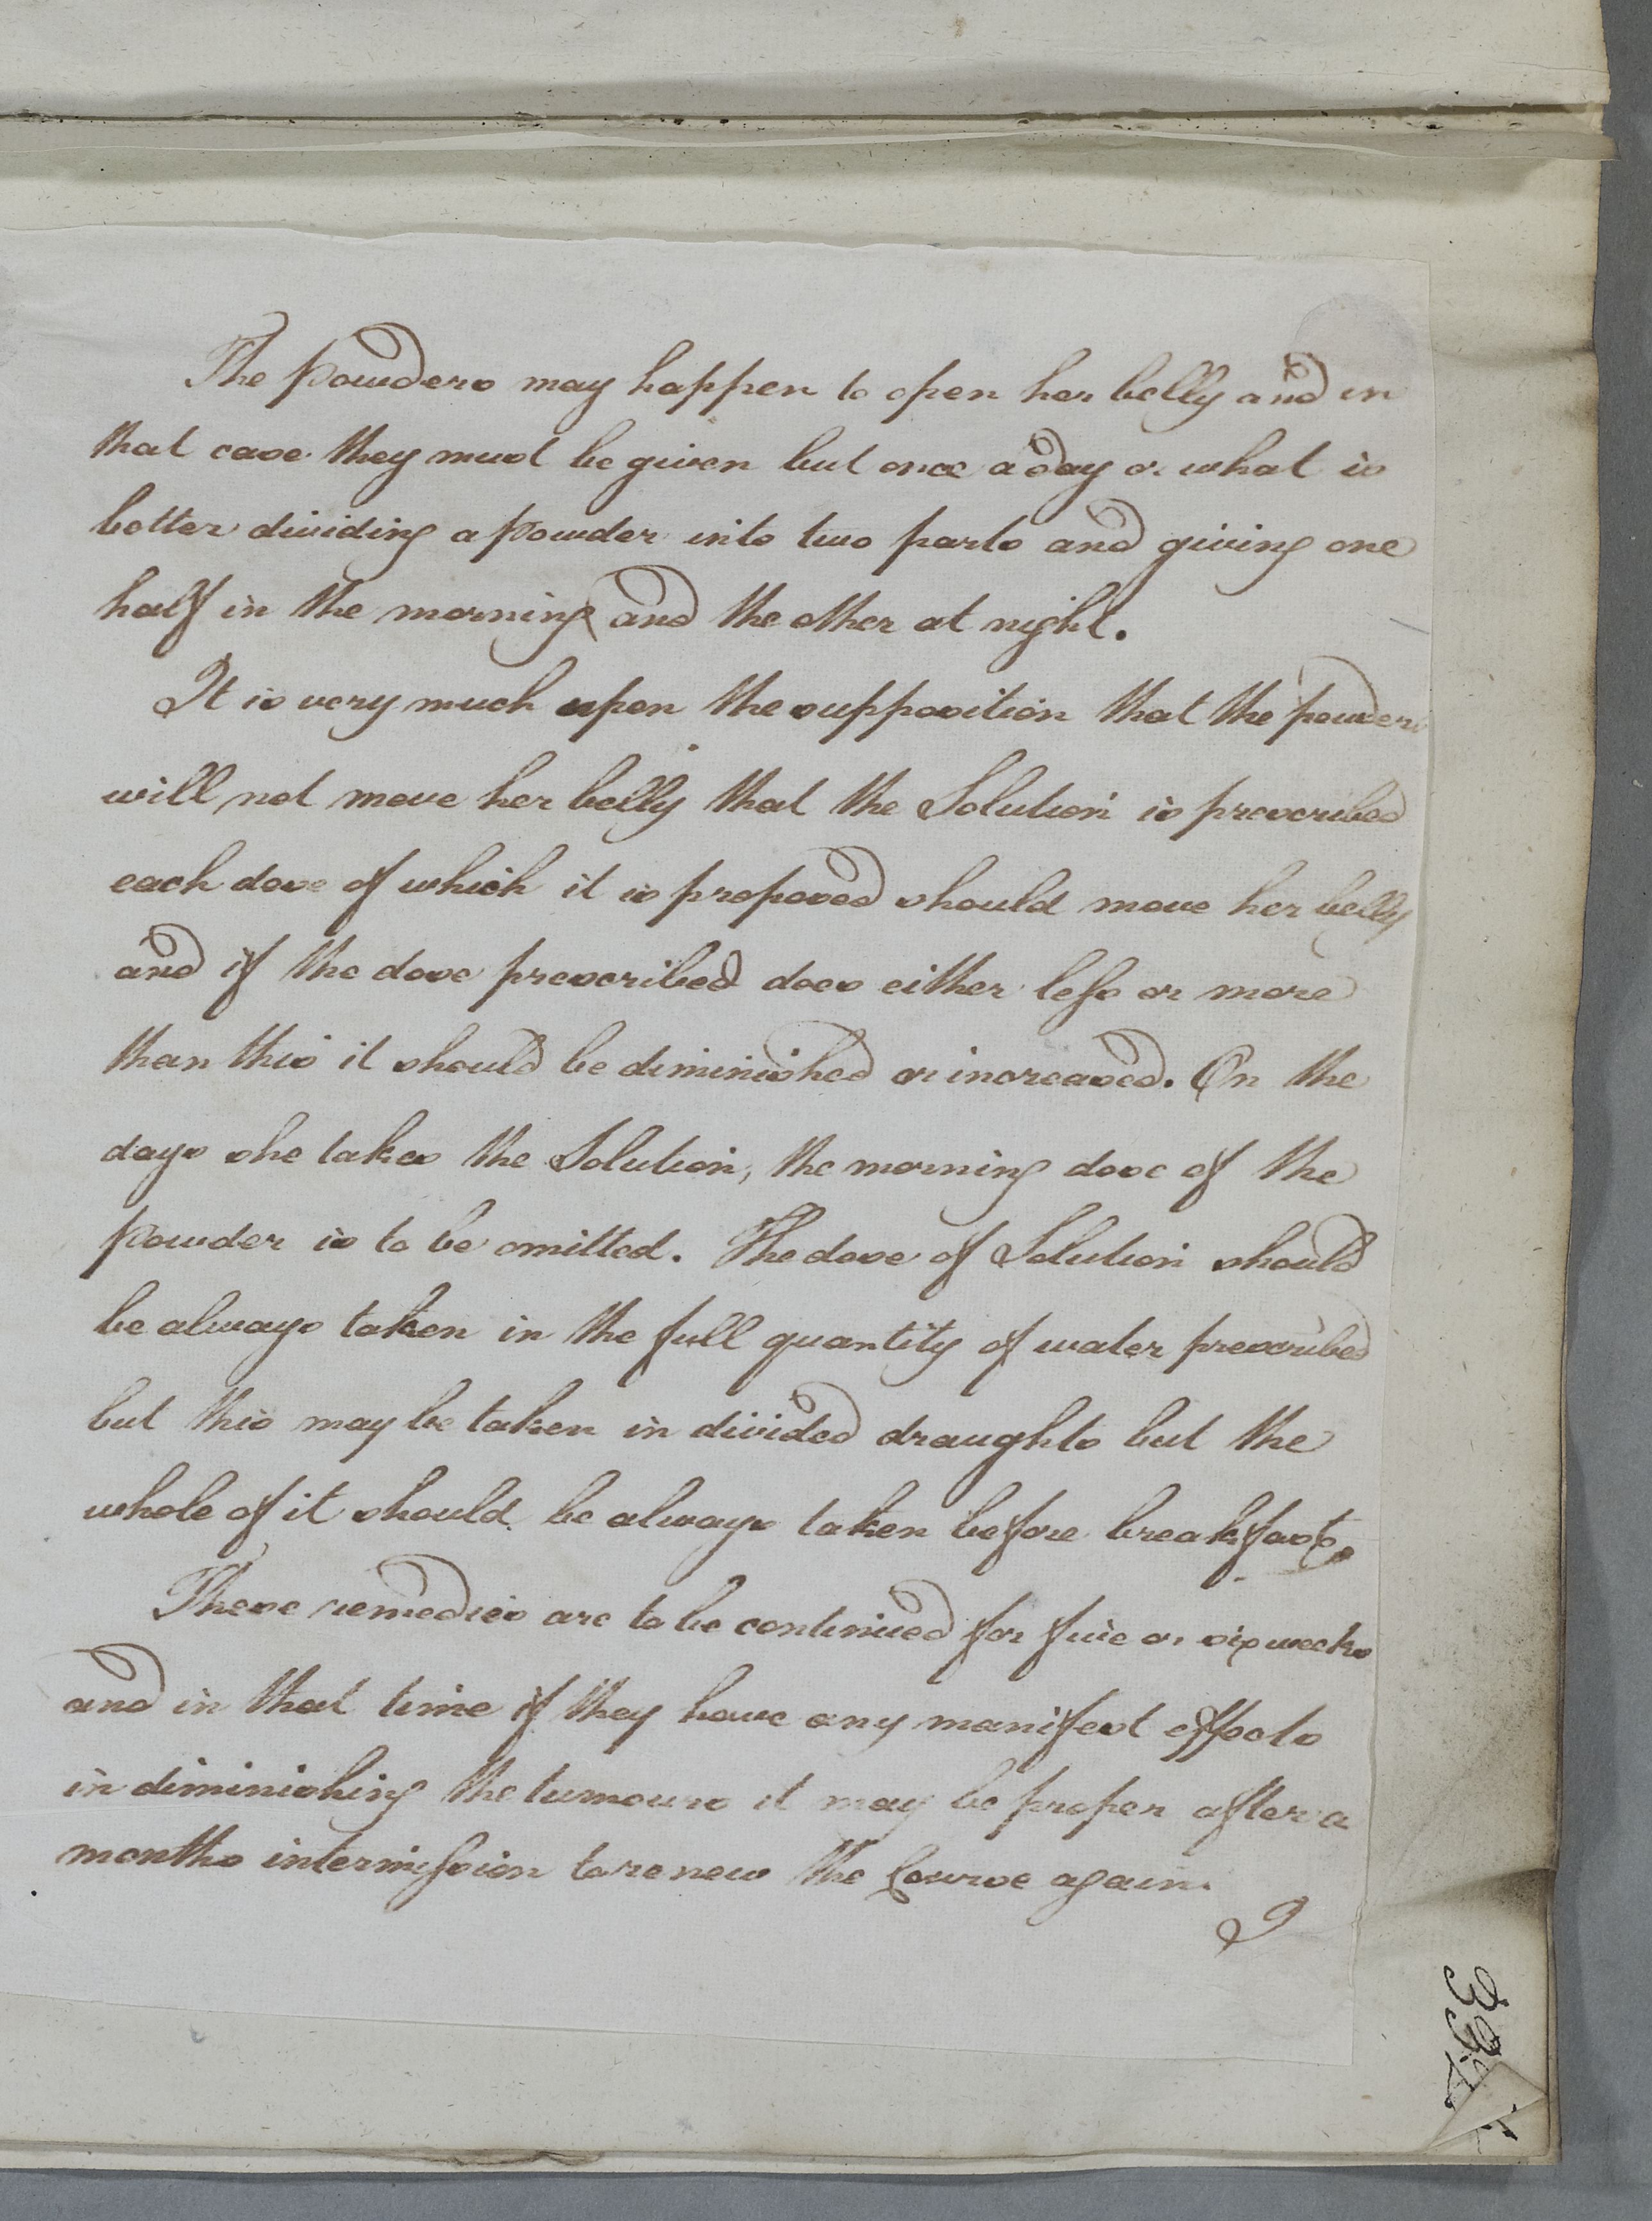 The powders may happen to open her belly and in
that case they must be given but once a day or what is
better dividing a powder into two parts and giving one
half in the morning and the other at night.
It is very much upon the supposition that the powders
will not move her belly that the Solution is prescribed
each dose of which it is proposed should move her belly
and if the dose prescribed does either less or more
than this it should be diminished or increased. On the
days she takes the Solution, the morning dose of the
powder is to be omitted. The dose of Solution should
be always taken in the full quantity of water prescribed
but this may be taken in divided draughts but the
whole of it should be always taken before breakfast.
These remedies are to be continued for five or six weeks
and in that time if they have any manifest effects
in diminishing the tumours it may be proper after a
months intermission to renew the Course again.